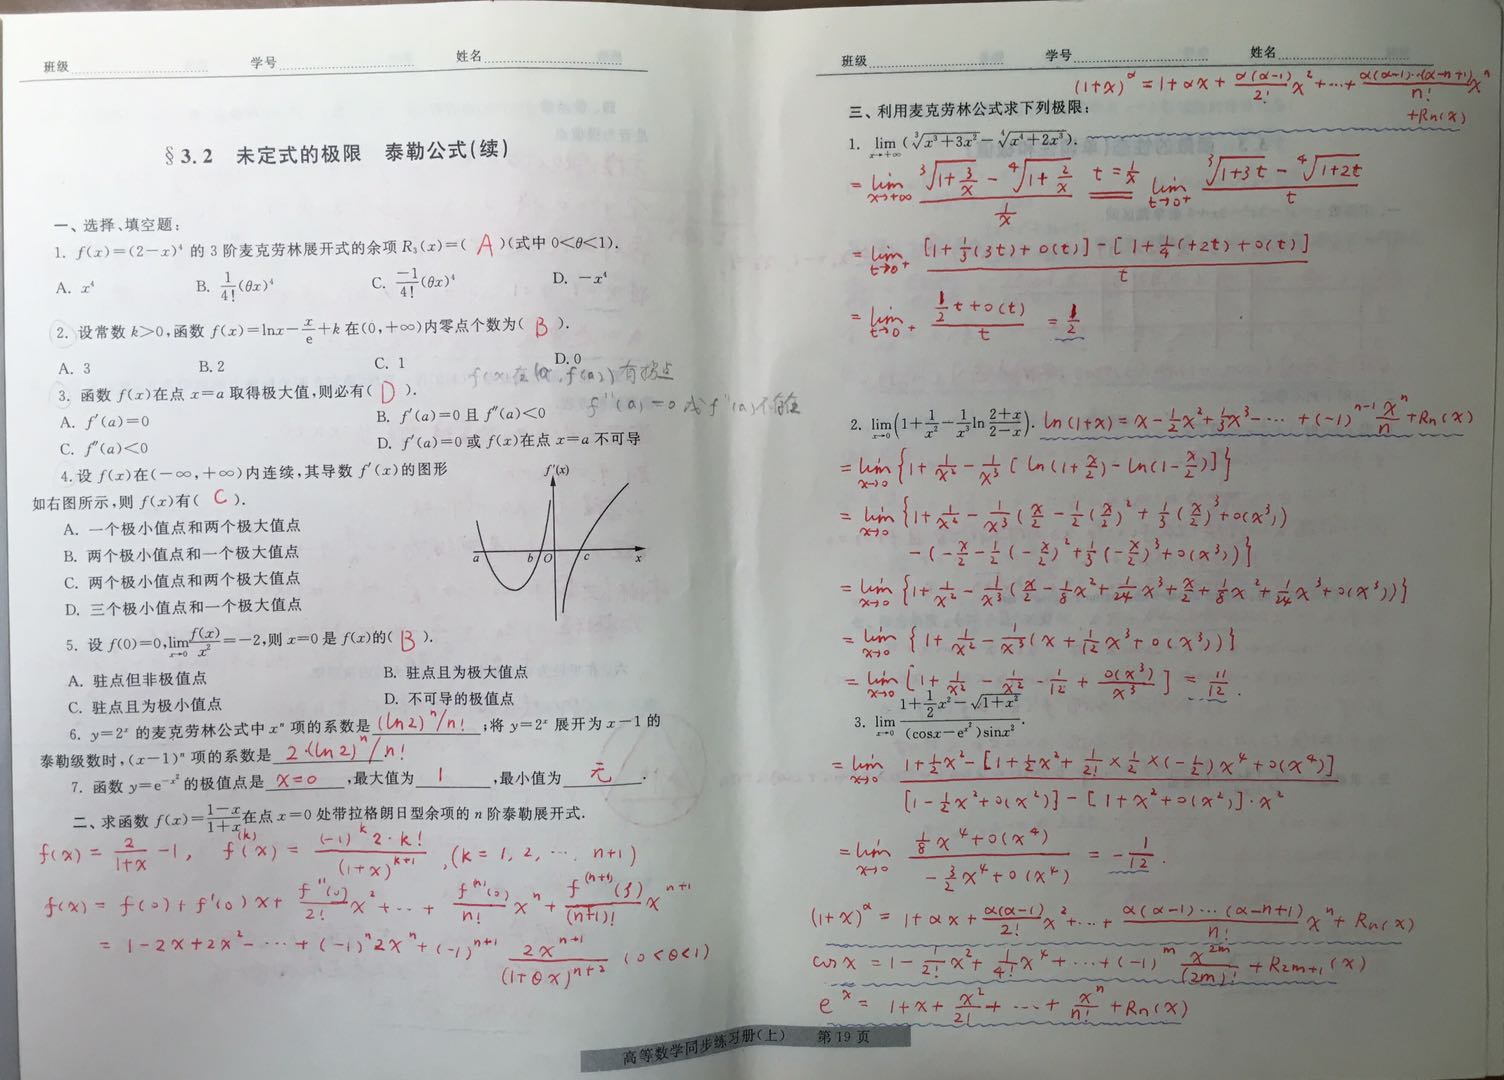 班级 学号 姓名
§3.2 未定式的极限 泰勒公式(续)
一、选择、填空题:
1. f(x)=(2-x)⁴ 的 3 阶麦克劳林展开式的余项 R₃(x)=( A )(式中 0<θ<1).
A. x⁴ B. 1/4!(θx)⁴ C. -1/4!(θx)⁴ D. -x⁴
2. 设常数 k>0,函数 f(x)=lnx-x/e+k 在(0,+∞)内零点个数为( B ).
A. 3 B. 2 C. 1 D. 0
3. 函数 f(x)在点 x=a 取得极大值,则必有( D ).
A. f′(a)=0 B. f′(a)=0 且 f″(a)<0
C. f″(a)<0 D. f′(a)=0 或 f(x)在点 x=a 不可导
4. 设 f(x)在(-∞,+∞)内连续,其导数 f′(x)的图形
如右图所示,则 f(x)有( C ).
A. 一个极小值点和两个极大值点
B. 两个极小值点和一个极大值点
C. 两个极小值点和两个极大值点
D. 三个极小值点和一个极大值点
f′(x)
a b O c x
5. 设 f(0)=0,lim x→0 f(x)/x²=-2,则 x=0 是 f(x)的( B ).
A. 驻点但非极值点 B. 驻点且为极大值点
C. 驻点且为极小值点 D. 不可导的极值点
6. y=2ˣ 的麦克劳林公式中 xⁿ 项的系数是 (ln2)ⁿ/n! ;将 y=2ˣ 展开为 x-1 的
泰勒级数时,(x-1)ⁿ 项的系数是 2·(ln2)ⁿ/n!
7. 函数 y=e^(-x²) 的极值点是 x=0 ,最大值为 1 ,最小值为 无 .
二、求函数 f(x)=(1-x)/(1+x) 在点 x=0 处带拉格朗日型余项的 n 阶泰勒展开式.
f(x) = 2/(1+x) -1, f^(k)(x) = (-1)^k 2·k!/(1+x)^(k+1), (k=1, 2, …, n+1)
f(x) = f(0)+f′(0)x+ f″(0)/2! x² +…+ f^(n)(0)/n! xⁿ + f^(n+1)(ξ)/(n+1)! x^(n+1)
= 1-2x+2x²-…+(-1)ⁿ2xⁿ+(-1)^(n+1) 2x^(n+1)/(1+θx)^(n+2) (0<θ<1)
班级 学号 姓名
(1+x)^α = 1+αx+ α(α-1)/2! x² +…+ α(α-1)…(α-n+1)/n! xⁿ
+Rn(x)
三、利用麦克劳林公式求下列极限:
1. lim x→+∞ (∛(x³+3x²)-∜(x⁴+2x³)).
= lim x→+∞ (∛(1+3/x) - ∜(1+2/x))/(1/x) t=1/x = lim t→0⁺ (∛(1+3t) - ∜(1+2t))/t
= lim t→0⁺ ([1+1/3(3t)+o(t)]-[1+1/4(+2t)+o(t)])/t
= lim t→0⁺ (1/2 t+o(t))/t = 1/2
2. lim x→0 (1+1/x²-1/x³ ln (2+x)/(2-x)). ln(1+x) = x-1/2x²+1/3x³-…+(-1)^(n-1) xⁿ/n +Rn(x)
= lim x→0 {1+1/x²-1/x³[ln(1+x/2)-ln(1-x/2)]}
= lim x→0 {1+1/x²-1/x³(x/2-1/2(x/2)²+1/3(x/2)³+o(x³))
-(-x/2-1/2(-x/2)²+1/3(-x/2)³+o(x³))}
= lim x→0 {1+1/x²-1/x³(x/2-1/8x²+1/24x³+x/2+1/8x²+1/24x³+o(x³))}
= lim x→0 {1+1/x²-1/x³(x+1/12x³+o(x³))}
= lim x→0 [1+1/x²-1/x²-1/12+o(x³)/x³] = 11/12.
3. lim x→0 (1+1/2x²-√(1+x²))/((cosx-e^(x²))sinx²).
= lim x→0 (1+1/2x²-[1+1/2x²+1/2!×1/2×(-1/2)x⁴+o(x⁴)])/([1-1/2x²+o(x²)]-[1+x²+o(x²)]·x²)
= lim x→0 (1/8x⁴+o(x⁴))/(-3/2x⁴+o(x⁴)) = -1/12.
(1+x)^α = 1+αx+ α(α-1)/2! x²+…+ α(α-1)…(α-n+1)/n! xⁿ+Rn(x)
cosx = 1-1/2!x²+1/4!x⁴+…+(-1)^m x^(2m)/(2m)! +R2m+1(x)
e^x = 1+x+x²/2!+…+xⁿ/n!+Rn(x)
高等数学同步练习册(上) 第 19 页